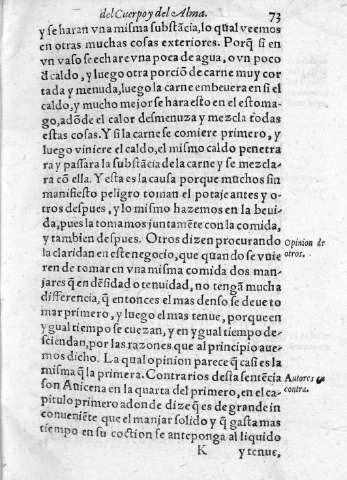 del Cuerpo y del Alma. 73
y se haran vna misma substãcia, lo qual veemos
en otras muchas cosas exteriores. Porq̃ si en
vn vaso se echare vna poca de agua, o vn poco
d̃ caldo, y luego otra porciõ de carne muy cor
tada y menuda, luego la carne embeuera en si el
caldo, y mucho mejor se hara esto en el estoma-
go, adõde el calor desmenuza y mezcla todas
estas cosas. Y si la carne se comiere primero, y
luego viniere el caldo, el mismo caldo penetra
ra y passara la substãcia de la carne y se mezcla-
ra cõ ella. Y esta es la causa porque muchos sin
manifiesto peligro toman el potaje antes y o-
tros despues, y lo mismo hazemos en la beui-
da, pues la tomamos juntamẽte con la comida,
y tambien despues. Otros dizen procurando
Opinion de
otros.
la claridan en este negocio, que quando se vuie
ren de tomar en vna misma comida dos man-
jares q̃ en dẽsidad o tenuidad, no tengã mucha
differencia, q̃ entonces el mas denso se deue to
mar primero, y luego el mas tenue, porque en
ygual tiempo se cuezan, y en ygual tiempo de-
sciendan, por las razones que al principio aue-
mos dicho. La qual opinion parece q̃ casi es la
misma q̃ la primera. Contrarios desta sentẽcia
Autores en
contra.
son Auicena en la quarta del primero, en el ca-
pitulo primero adonde dize q̃ es de grande in
conueniẽte que el manjar solido y q̃ gasta mas
tiempo en su coction se anteponga al liquido
K y tenue,